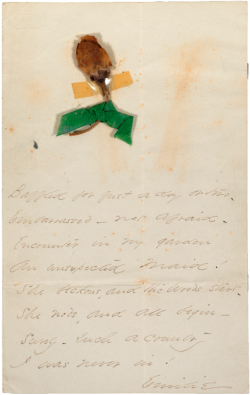 Baffled for just a day or two –
Embarrassed – not afraid –
Encounter in my garden
An unexpected Maid!
She beckons, and the woods start –
She nods, and all begin –
Surely – such a country
I was never in!
Emilie